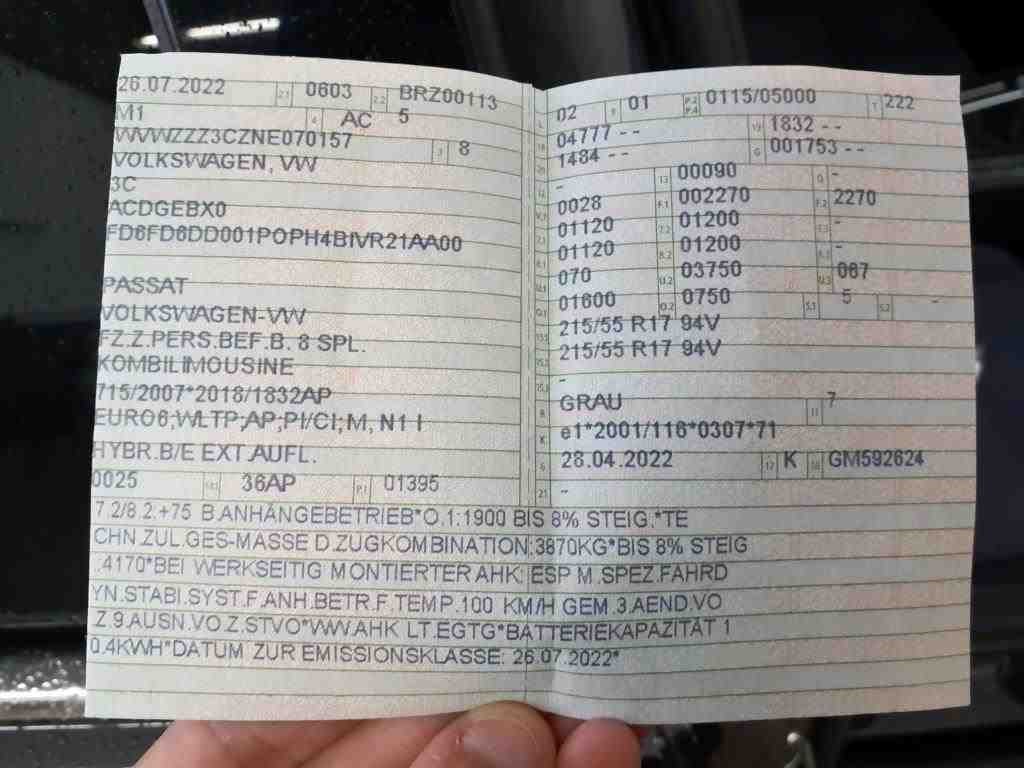 26.07.2022 2.1 0603 2.2 BRZ00113
M1 4 AC 5
WVWZZZ3CZNE070157 3 8
VOLKSWAGEN, VW
3C
ACDGEBX0
FD6FD6DD001POPH4BIVR21AA00
PASSAT
VOLKSWAGEN-VW
FZ.Z.PERS.BEF.B. 8 SPL.
KOMBILIMOUSINE
715/2007*2018/1832AP
EURO6;WLTP;AP;PI/CI; M, N1 I
HYBR.B/E EXT.AUFL.
0025 14.1 36AP P.1 01395
L 02 9 01 P.2 P.4 0115/05000 T 222
18 04777 -- 19 1832 --
20 1484 -- G 001753 --
12 - 13 00090 Q -
V.7 0028 F.1 002270 F.2 2270
7.1 01120 7.2 01200 7.3 -
8.1 01120 8.2 01200 8.3 -
U.1 070 U.2 03750 U.3 067
O.1 01600 O.2 0750 S.1 5 S.2 -
15.1 215/55 R17 94V
15.2 215/55 R17 94V
15.3 -
R GRAU 11 7
K e1*2001/116*0307*71
6 28.04.2022 17 K 16 GM592624
21 -
7.2/8.2:+75 B.ANHÄNGEBETRIEB*O.1:1900 BIS 8% STEIG.*TE
CHN.ZUL.GES-MASSE D.ZUGKOMBINATION:3870KG*BIS 8% STEIG
.4170*BEI WERKSEITIG MONTIERTER AHK: ESP M.SPEZ.FAHRD
YN.STABI.SYST.F.ANH.BETR.F.TEMP.100 KM/H GEM.3.AEND.VO
Z.9.AUSN.VO.Z.STVO*WW.AHK LT.EGTG*BATTERIEKAPAZITÄT 1
0.4KWH*DATUM ZUR EMISSIONSKLASSE: 26.07.2022*